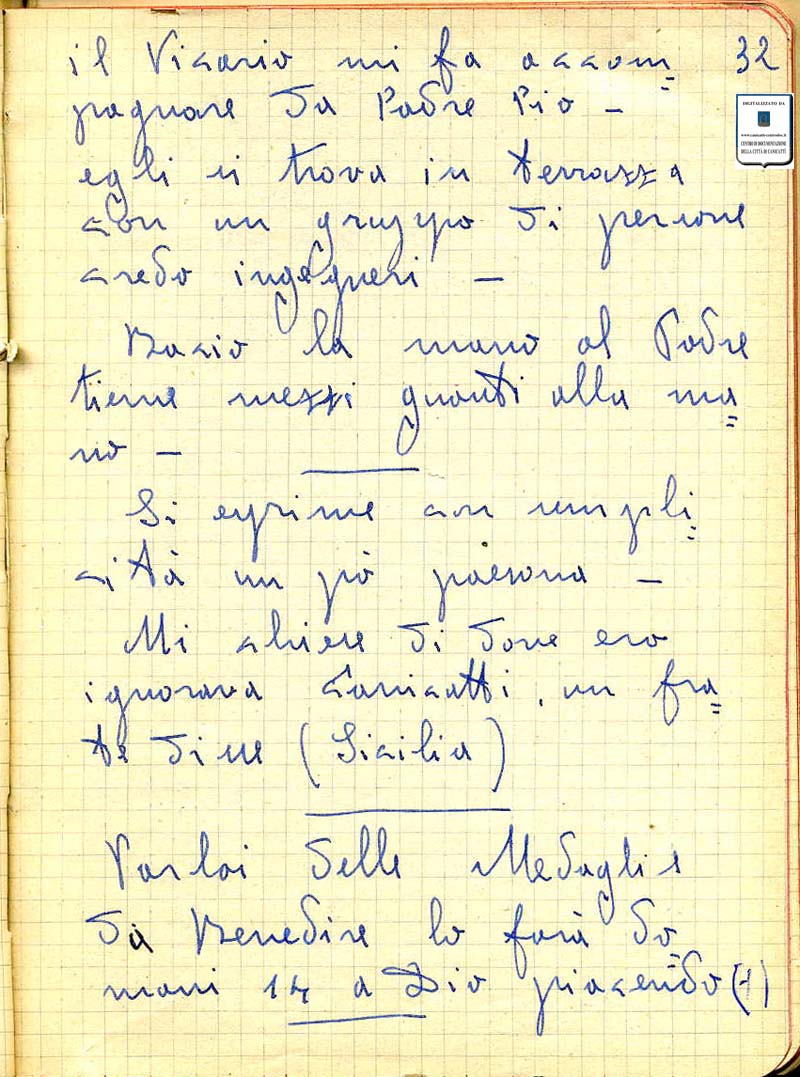 32
il Vicario mi fa accom=
pagnare da Padre Pio –
DIGITALIZZATO DA
www.canicatti-centrodoc.it
CENTRO DI DOCUMENTAZIONE
DELLA CITTÀ DI CANICATTÌ
egli si trova in terrazza
con un gruppo di persone
credo ingegneri –
Bacio la mano al Padre
tiene mezzi guanti alla ma=
no –
Si esprime con sempli=
cità un pò paesana –
Mi chiese di dove ero
ignorava Canicatti, un fra=
te disse (Sicilia)
Parlai delle Medaglie
da Benedire lo farà do=
mani 14 a Dio piacendo (1)